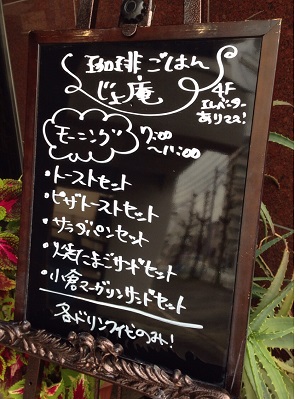 珈琲ごはん
じょ庵
4F
エレベーター
あります!
モーニング
7:00
〜11:00
・トーストセット
・ピザトーストセット
・サラダパンセット
・焼たまごサンドセット
・小倉マーガリンサンドセット
各ドリンク